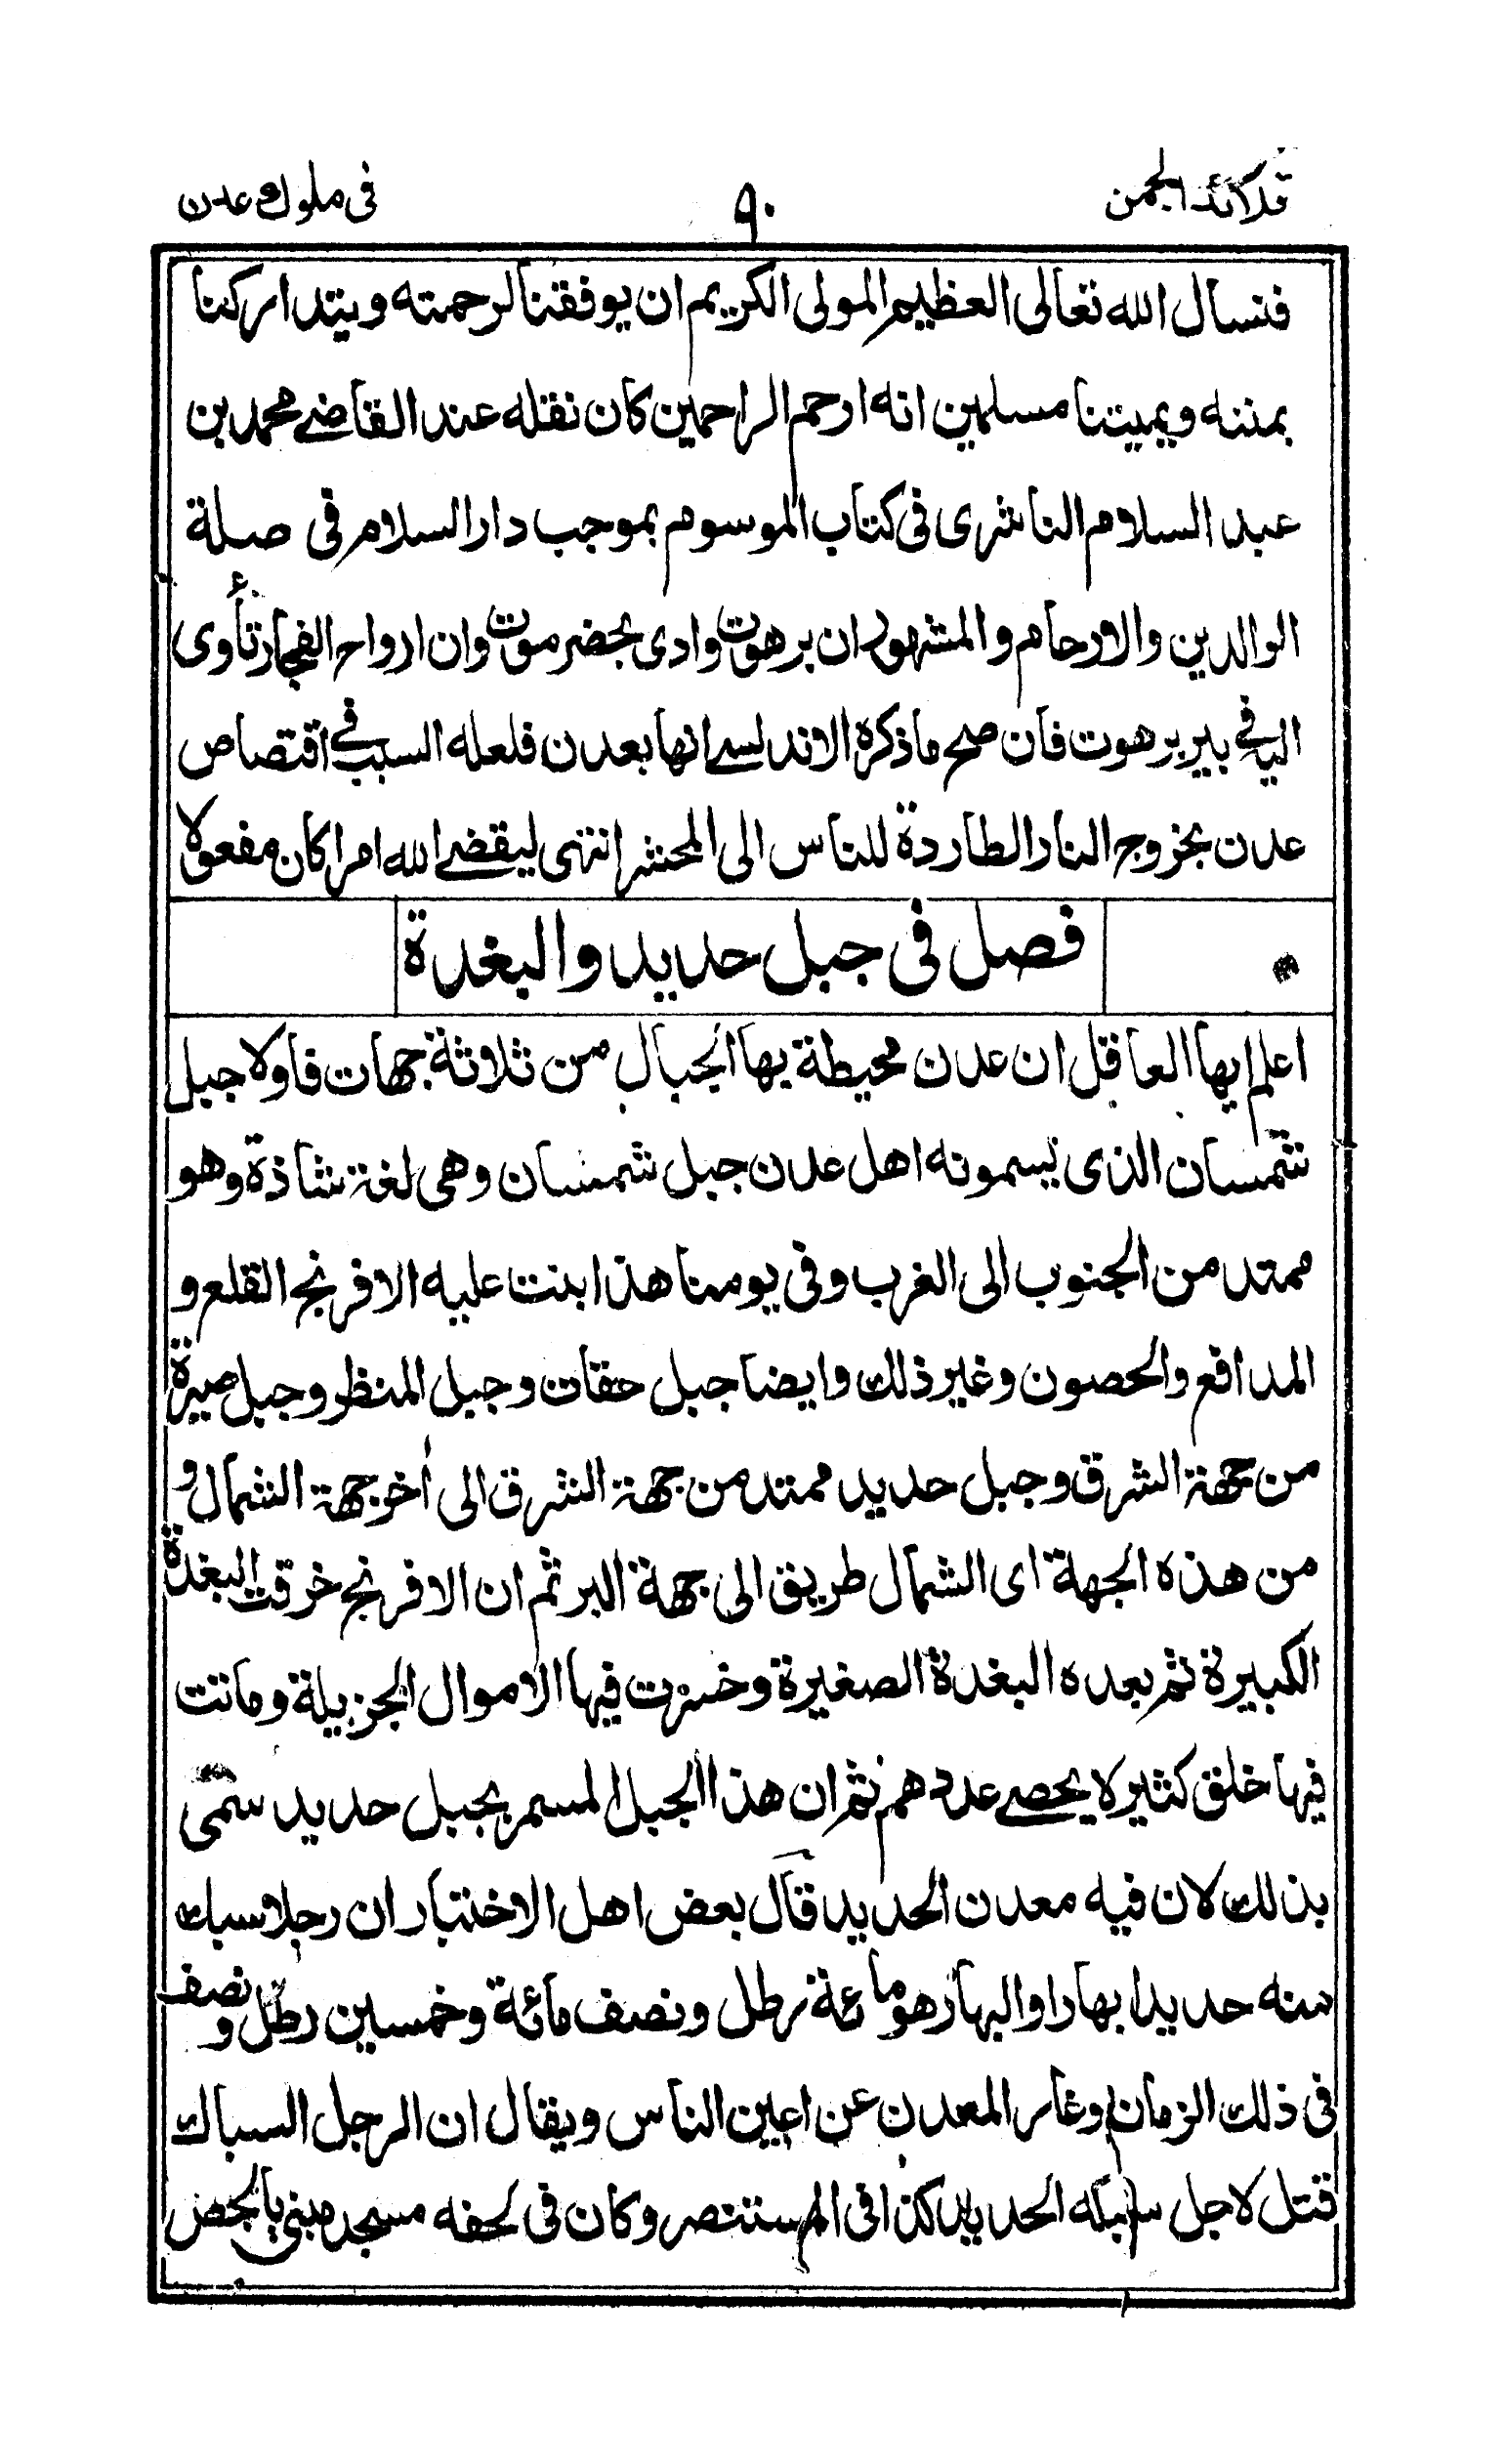 قلائد الجمن ٩٠ فى ملوك عدن
فنسال الله تعالى العظيم المولى الكريم ان يوفقنا لرحمته ويتداركنا
بمننه ويميتنا مسلمين انه ارحم الراحمين كان نقله عند القاضى محمد بن
عبد السلام الناشرى فى كتاب الموسوم بموجب دار السلام فى صلة
الوالدين والارحام والمشهور ان برهوت وادى بحضرموت وان ارواح الفجار تأوى
اليه فى بير برهوت فان صح ما ذكره الاندلسى انها بعدن فلعله السبب فى اقتصاص
عدن بخروج النار الطاردة للناس الى المحشر انتهى ليقضى الله امرا كان مفعولا
فصل فى جبل حديد والبغدة
اعلم ايها العاقل ان عدن محيطة بها الجبال من ثلاثة جهات فاولا جبل
شمسان الذى يسمونه اهل عدن جبل شمسان وهى لغة شاذة وهو
ممتد من الجنوب الى الغرب وفى يومنا هذا بنت عليه الافرنج القلع و
المدافع والحصون وغير ذلك وايضا جبل حقات وجبل المنظر وجبل صيرة
من جهة الشرق وجبل حديد ممتد من جهة الشرق الى أخر جهة الشمال و
من هذه الجهة اى الشمال طريق الى جهة البر ثم ان الافرنج خرقت البغدة
الكبيرة ثم بعده البغدة الصغيرة وخسرت فيها الاموال الجزيلة وماتت
فيها خلق كثير لا يحصى عددهم ثم ان هذا الجبل المسمر بجبل حديد سمى
بذلك لان فيه معدن الحديد قال بعض اهل الاختبار ان رجلا سبك
منه حديدا بهارا والبهار هو مائة رطل ونصف مائة وخمسين رطل ونصف
فى ذلك الزمان وغار المعدن عن اعين الناس ويقال ان الرجل السباك
قتل لاجل سبكه الحديد كذا فى المستنصر وكان فى لحفه مسجد مبنى بالجص